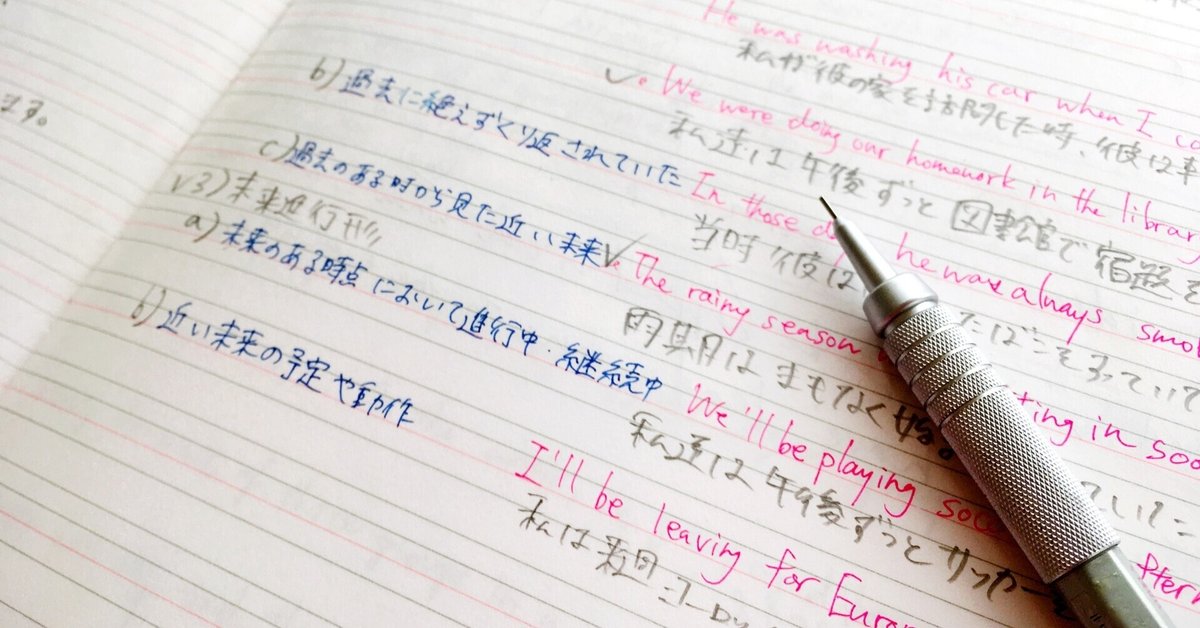 He was washing his car when I
私が彼の家を訪問した時、彼は車
We were doing our homework in the library
私達は午後ずっと図書館で宿題を
b) 過去に絶えずくり返されていた In those he was always smo
当時彼は たばこをすっていた
c) 過去のある時から見た近い未来 The rainy season ting in soo
雨期はまもなく始 ていた
v3) 未来進行形
a) 未来のある時点において進行中・継続中 We'll be playing soc
私達は午後ずっとサッカーを
b) 近い未来の予定や動作 I'll be leaving for Europ
私は ヨーロッ
する。